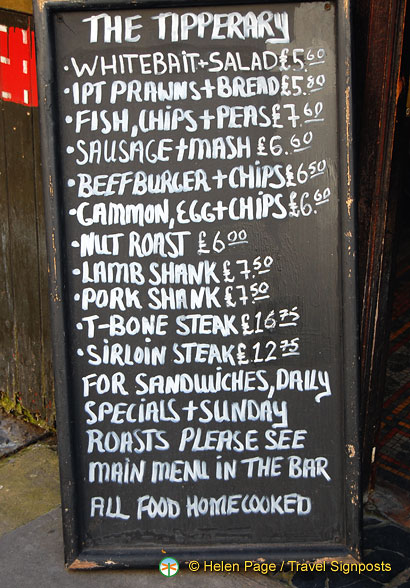 THE TIPPERARY
• WHITEBAIT + SALAD £5.60
• 1PT PRAWNS + BREAD £5.80
• FISH, CHIPS + PEAS £7.60
• SAUSAGE + MASH £6.60
• BEEFBURGER + CHIPS £6.50
• GAMMON, EGG + CHIPS £6.60
• NUT ROAST £6.00
• LAMB SHANK £7.50
• PORK SHANK £7.50
• T-BONE STEAK £16.75
• SIRLOIN STEAK £12.75
FOR SANDWICHES, DAILY
SPECIALS + SUNDAY
ROASTS PLEASE SEE
MAIN MENU IN THE BAR
ALL FOOD HOMECOOKED
© Helen Page / Travel Signposts